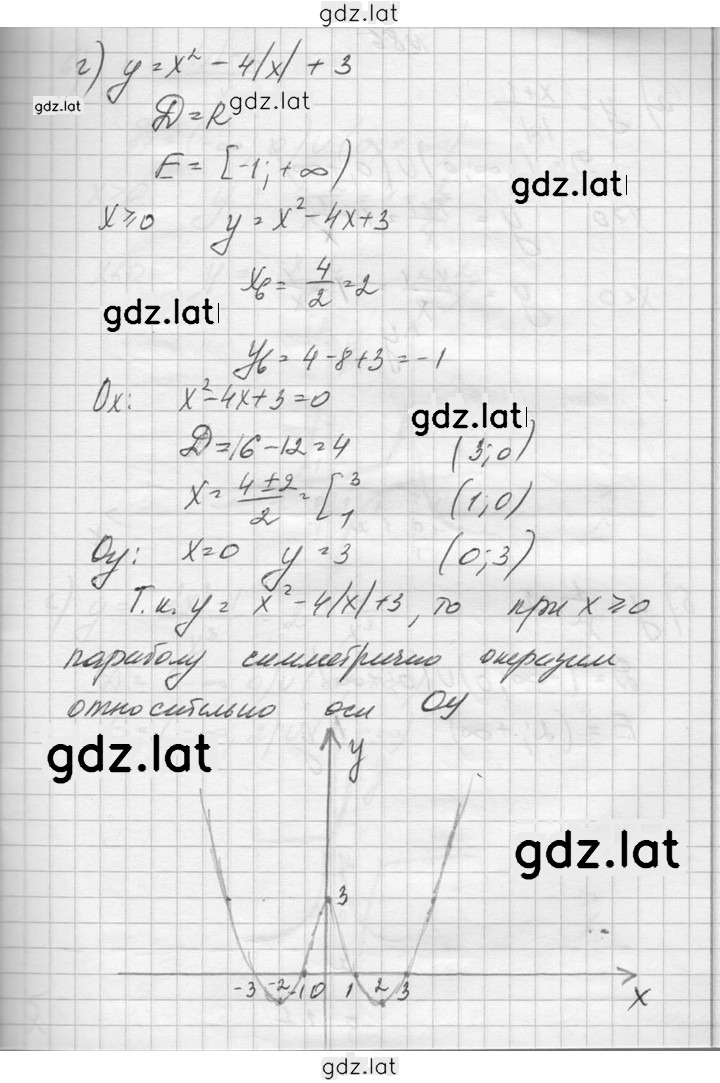 gdz.lat
г) y = x² - 4|x| + 3
gdz.lat
D = R
gdz.lat
E = [-1; +∞)
gdz.lat
x ≥ 0 y = x² - 4x + 3
xв = 4/2 = 2
gdz.lat
yв = 4 - 8 + 3 = -1
Ox: x² - 4x + 3 = 0
gdz.lat
D = 16 - 12 = 4 (3; 0)
x = (4 ± 2)/2 = [3 1 (1; 0)
Oy: x = 0 y = 3 (0; 3)
Т.к. y = x² - 4|x| + 3, то при x ≥ 0
параболу симметрично
относительно оси Oy
gdz.lat
y
gdz.lat
3
-3 -2 -1 0 1 2 3
x
gdz.lat